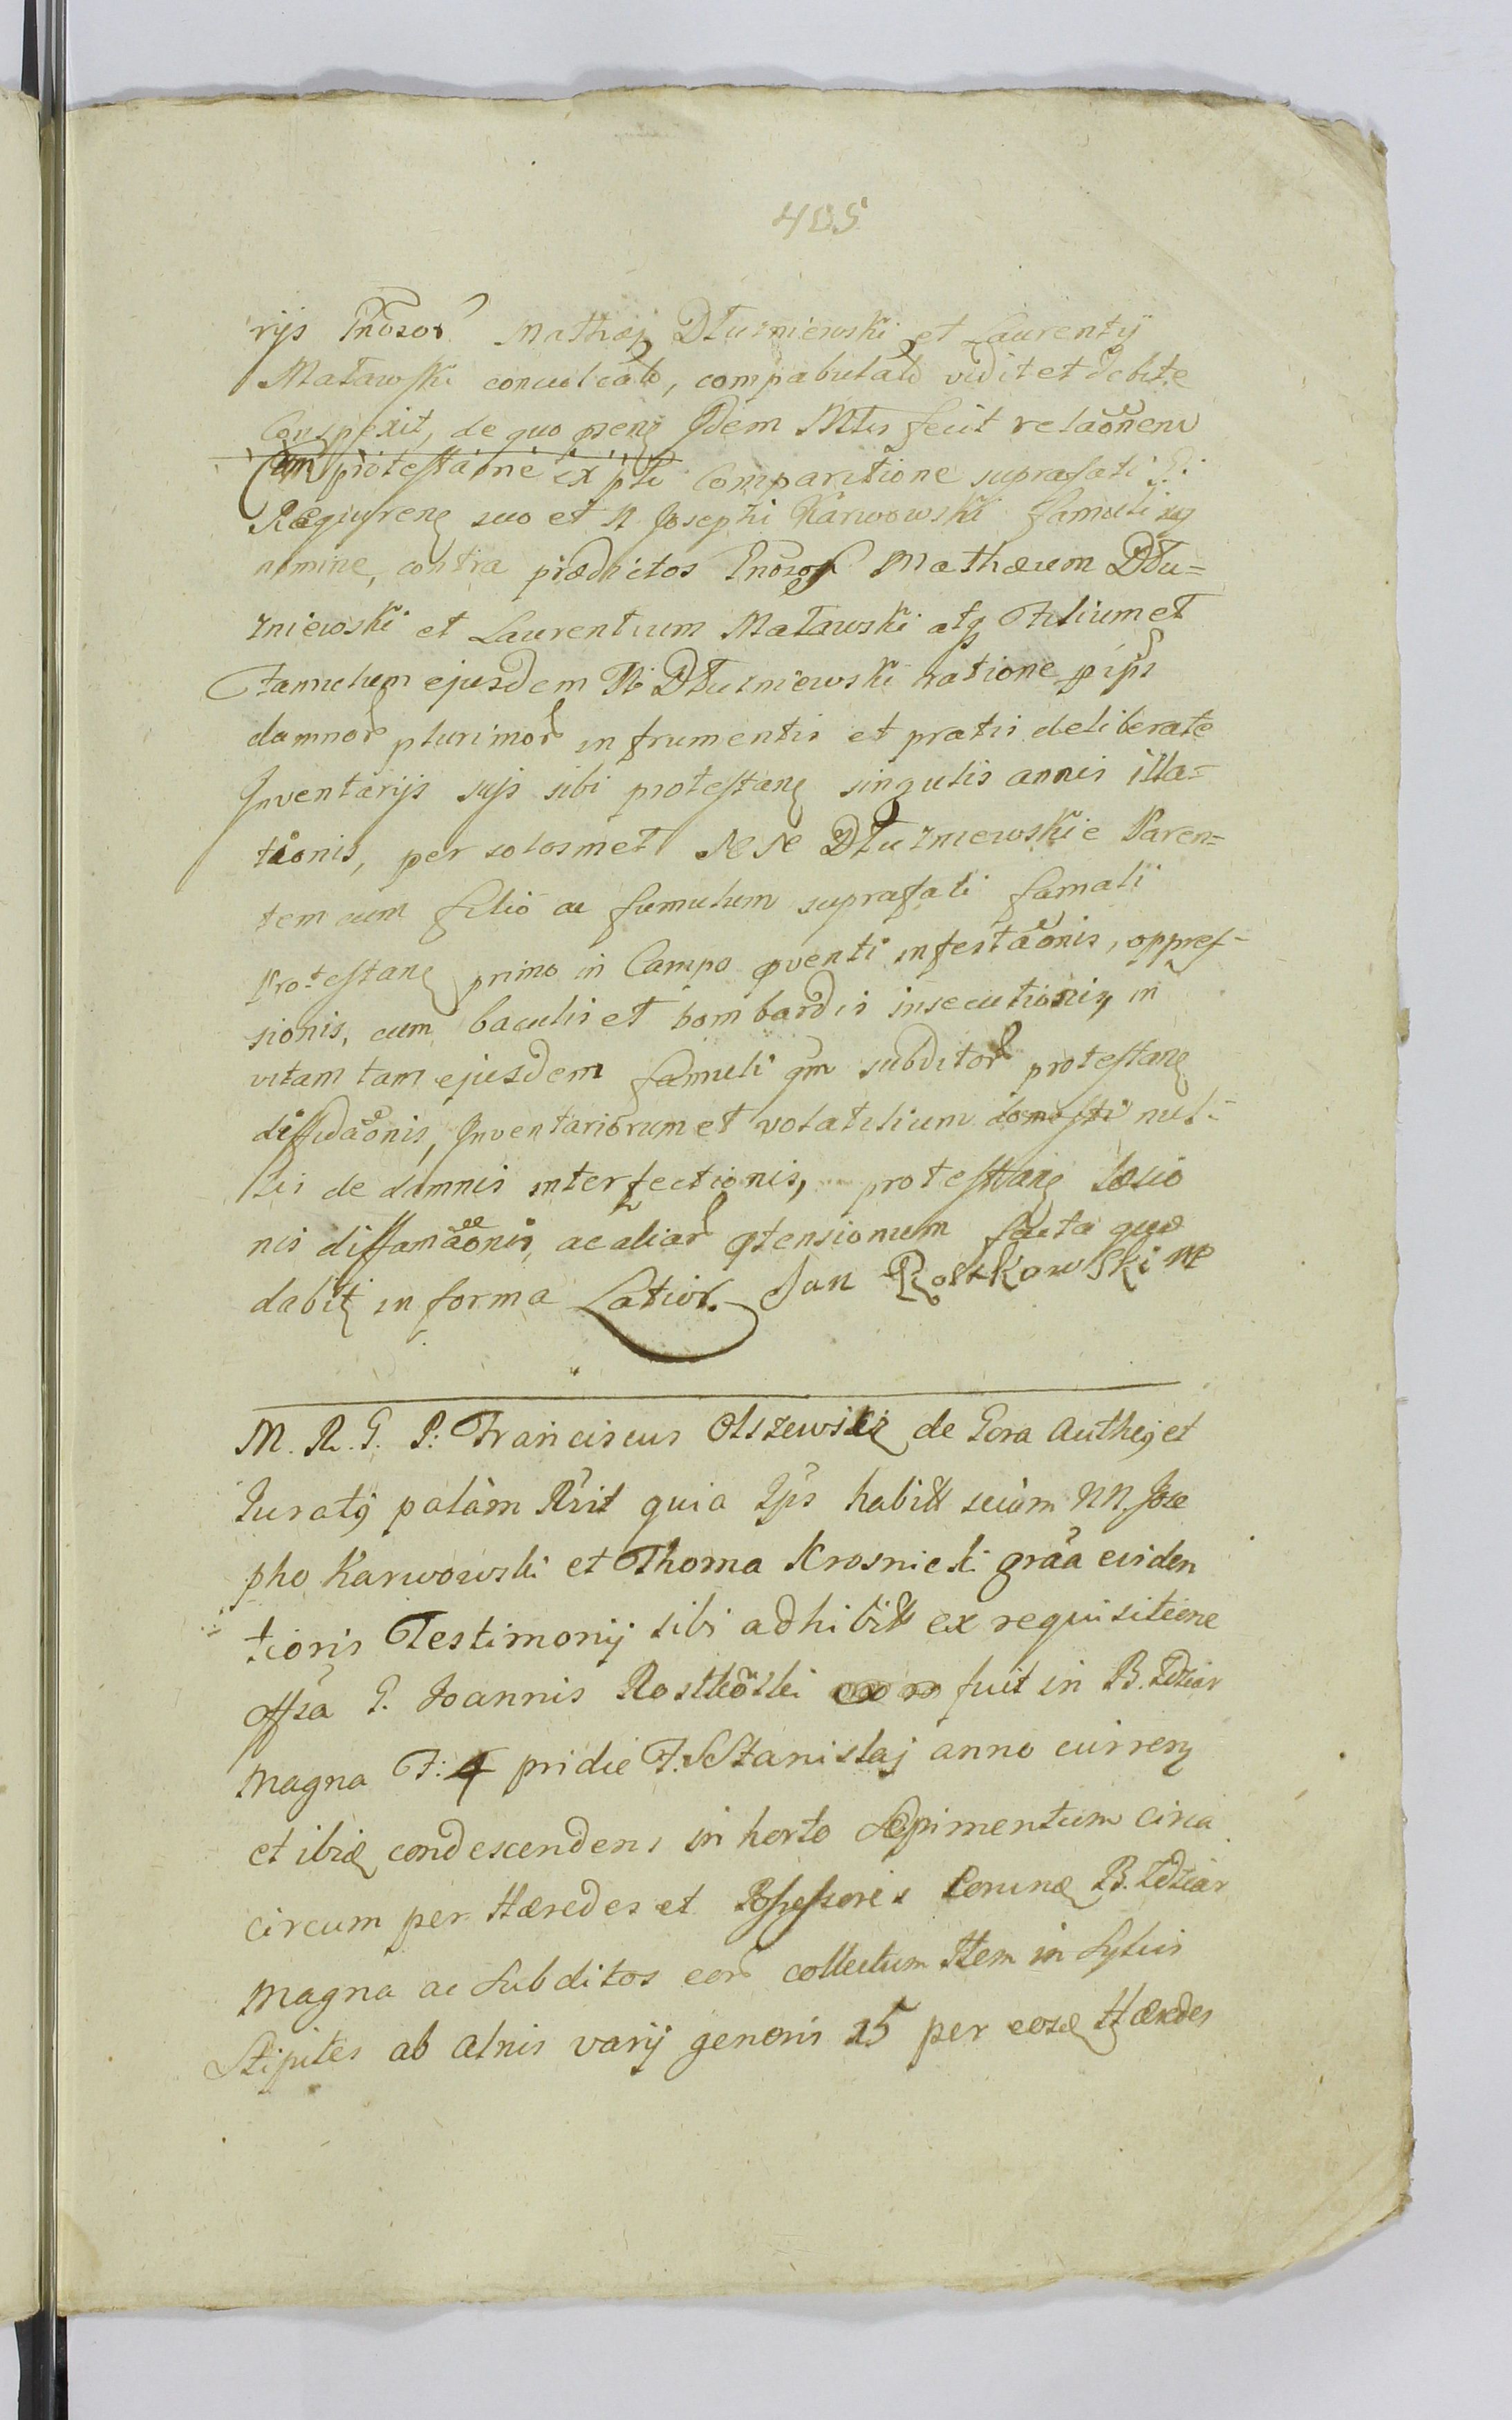 405
rijs Pnosor Mathæj Dłużniewski et Laurentij
Matawski conculcat, compabulat vidit et debite
Conspexit, de quo præns Idem Mtis fecit relaõnem
Cum protestaõne ex pti Comparitione suprafati Gi
Requirens suo et N Josephi Karwowski famuli sui
nomine, contra prædictos Pnosos Mathæum Dłu=
żniewski et Laurentium Matawski atq Filium et
Famulum ejusdem Ni Dłużniewski ratione p ips
damnor plurimor in frumentis et pratis deliberate
Inventarijs suis sibi protestans singulis annis illa=
tionis, per solosmet NN Dłużniewskie Paren=
tem cum filio ac famulum suprafati famuli
Protestans primo in Campo oventi infestaõnis, oppres=
sionis, cum baculis et bombardis insecutionis, in
vitam tam ejusdem famuli qm subditor protestans
diffidaõnis, Inventariorum et volatilium domesti nul-
lis de damnis interfectionis, protestans læsio
nis diffamaõnis, ac aliar prtensionum facta quæ
dabit in forma Latior. Jan Rostkowski mp
M. R. G. P: Franciscus Olszewski de Gora Authen et
Juratq palàm Rsit quia Ips habitt secùm NN. Jose
pho Karwowski et Thoma Krosnicki grãa eviden
tioris Testimonij sibi adhibitt ex requisitione
offsa G. Joannis Rostkõski fuit in B. Łdziar
magna F: 4 pridie F. S Stanislaj anno currens
et ibid condescendens in horto Sæpimentum circa
circum per Hæredes et Possessores bonino B. Łdziar
magna ac Subditos eor collectum Item in Sylvis
Stipites ab alnis varij generis 15 per eosd Hæredes